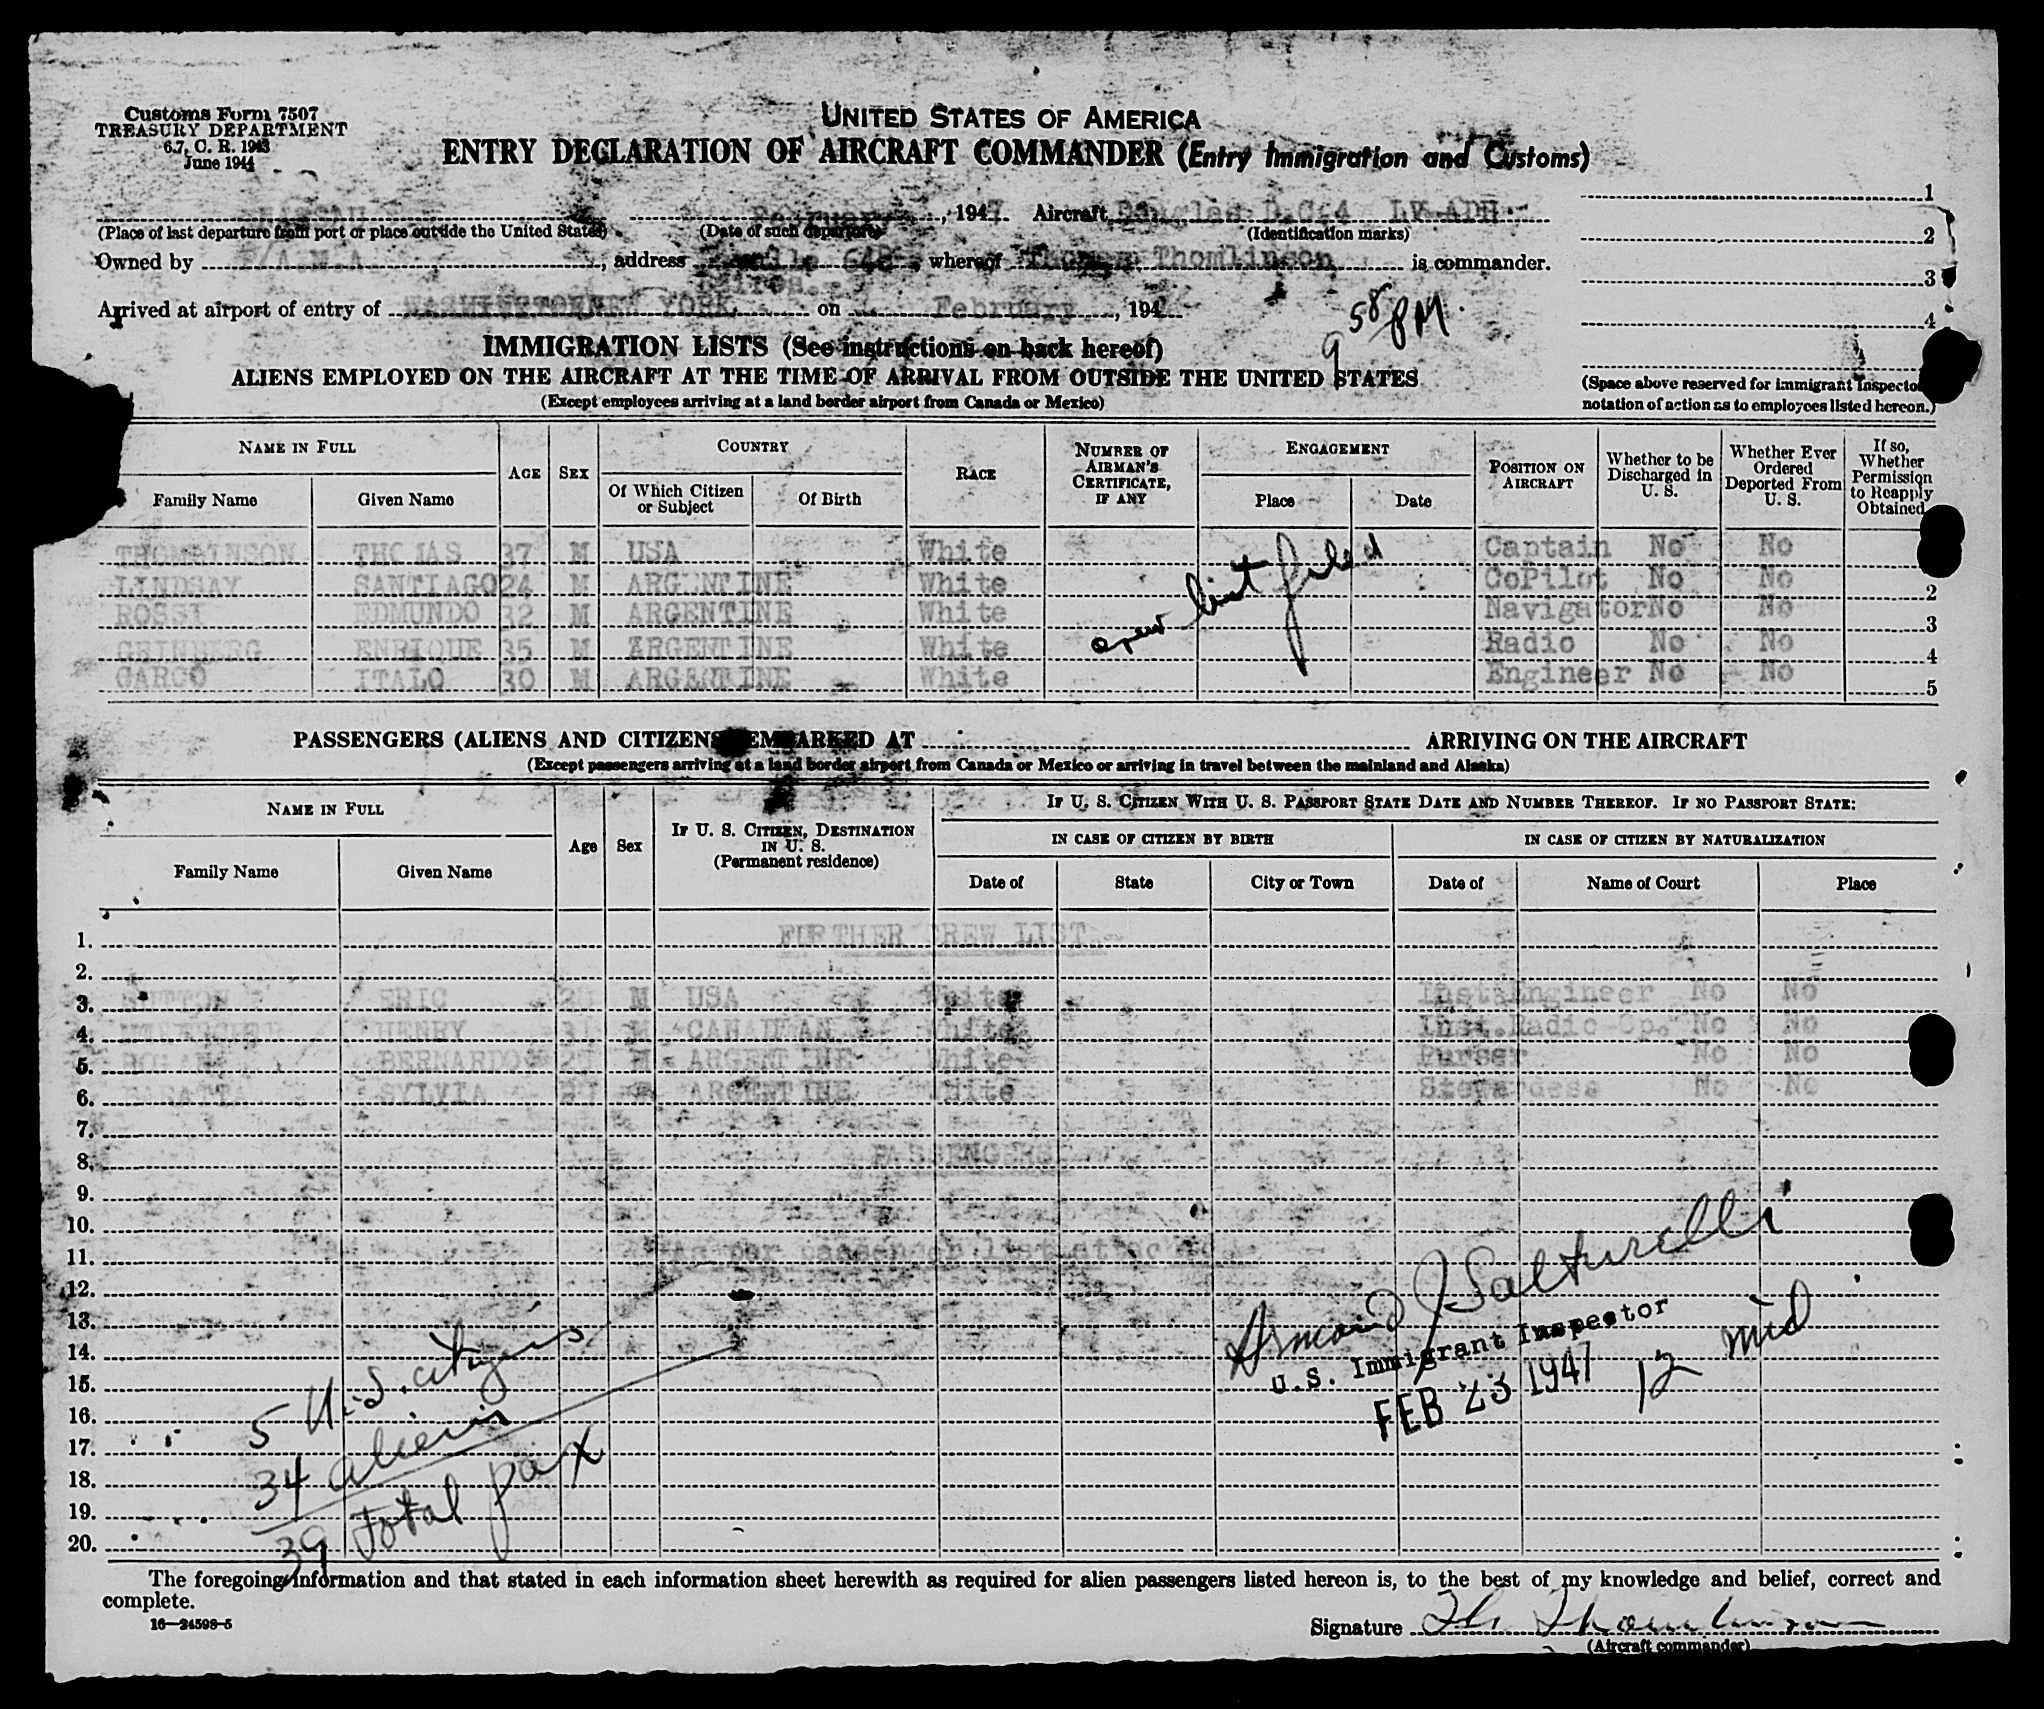 Customs Form 7507
TREASURY DEPARTMENT
6.7, C. R. 1943
June 1944
UNITED STATES OF AMERICA
ENTRY DECLARATION OF AIRCRAFT COMMANDER (Entry Immigration and Customs)
February, 1947 Aircraft Douglas D.C.4 LV.ADH
(Place of last departure from port or place outside the United States) (Date of such departure) (Identification marks)
Owned by F.A.M.A., address whereof Thomas Thomlinson is commander.
Arrived at airport of entry of NEW YORK on February, 194
9 58 PM.
1
2
3
4
(Space above reserved for immigrant inspector
notation of action as to employees listed hereon.)
IMMIGRATION LISTS (See instructions on back hereof)
ALIENS EMPLOYED ON THE AIRCRAFT AT THE TIME OF ARRIVAL FROM OUTSIDE THE UNITED STATES
(Except employees arriving at a land border airport from Canada or Mexico)
NAME IN FULL AGE SEX COUNTRY RACE NUMBER OF AIRMAN'S CERTIFICATE, IF ANY ENGAGEMENT POSITION ON AIRCRAFT Whether to be Discharged in U. S. Whether Ever Ordered Deported From U. S. If so, Whether Permission to Reapply Obtained
Family Name Given Name Of Which Citizen or Subject Of Birth Place Date
THOMLINSON THOMAS 37 M USA White Captain No No
LINDSAY SANTIAGO 24 M ARGENTINE White CoPilot No No 2
ROSSI EDMUNDO 32 M ARGENTINE White Navigator No No 3
GRINBERG ENRIQUE 35 M ARGENTINE White Radio No No 4
GARCO ITALO 30 M ARGENTINE White Engineer No No 5
crew list filed
PASSENGERS (ALIENS AND CITIZENS) EMBARKED AT ARRIVING ON THE AIRCRAFT
(Except passengers arriving at a land border airport from Canada or Mexico or arriving in travel between the mainland and Alaska)
NAME IN FULL Age Sex IF U. S. CITIZEN, DESTINATION IN U. S. (Permanent residence) IF U. S. CITIZEN WITH U. S. PASSPORT STATE DATE AND NUMBER THEREOF. IF NO PASSPORT STATE:
IN CASE OF CITIZEN BY BIRTH IN CASE OF CITIZEN BY NATURALIZATION
Family Name Given Name Date of State City or Town Date of Name of Court Place
1. FURTHER CREW LIST.-
2.
3. SUTTON ERIC M USA White Inst.Engineer No No
4. HENRY 31 M CANADIAN White Inst.Radio Op. No No
5. BERNARDO M ARGENTINE White Purser No No
6. SYLVIA ARGENTINE White Stewardess No No
7.
8. PASSENGERS
9.
10.
11. As per passenger list attached.
12.
13.
14.
15.
16.
17.
18.
19.
20.
5 U.S. citizens
34 aliens
39 total pax
Armand J Salturelli
U.S. Immigrant Inspector
FEB 23 1947 12 mid
The foregoing information and that stated in each information sheet herewith as required for alien passengers listed hereon is, to the best of my knowledge and belief, correct and
complete.
16—24598-5
Signature Th. Thomlinson
(Aircraft commander)